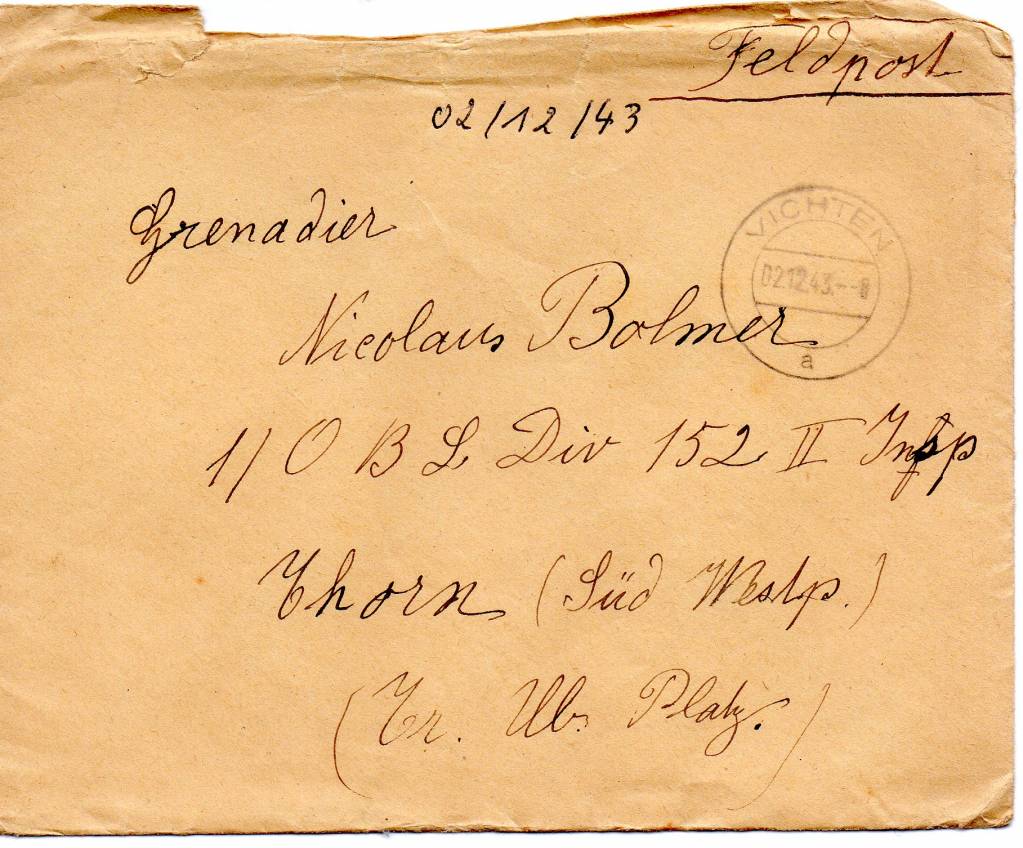 Feldpost
02/12/43
VICHTEN
02.12.43.--8
a
Grenadier
Nicolaus Bolmer
1/ O B L Div 152 II
Thorn (Süd Westp.)
(Tr. Ub. Platz.)